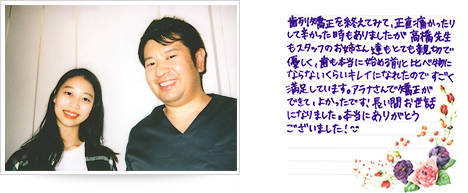 歯列矯正を終えてみて、正直痛かったり
して辛かった時もありましたが高橋先生
もスタッフのお姉さん達もとても親切で
優しく、歯も本当に始める前と比べ物に
ならないくらいキレイになれたのですごく
満足しています。プラナさんで矯正が
できてよかったです！長い間お世話
になりました。本当にありがとう
ございました！